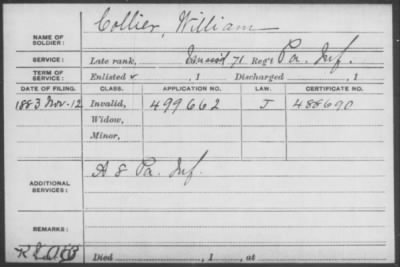 Collier, William
NAME OF
SOLDIER:
SERVICE: Late rank, 71 Reg't Pa. Inf.
TERM OF
SERVICE: Enlisted , 1 Discharged , 1
DATE OF FILING. CLASS. APPLICATION NO. LAW. CERTIFICATE NO.
1883 Nov. 12 Invalid, 499662 J 488690
Widow,
Minor,
A 8 Pa. Inf.
ADDITIONAL
SERVICES:
REMARKS:
Died , 1 , at